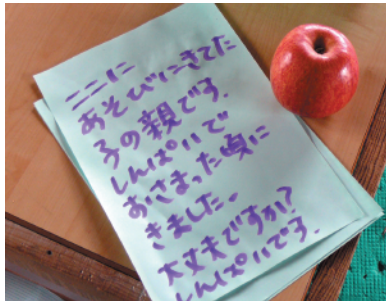 ここに
あそびにきてた
子の親です.
しんぱいで
おさまった頃に
きました.
大丈夫ですか?
しんぱいです.